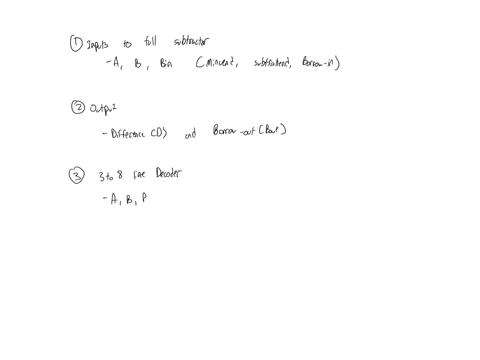 ① Inputs to full subtractor
- A, B, Bin (Minuend, subtrahend, Borrow-in)
② Output
- Difference (D) and Borrow-out (Bout)
③ 3 to 8 line Decoder
- A, B, P